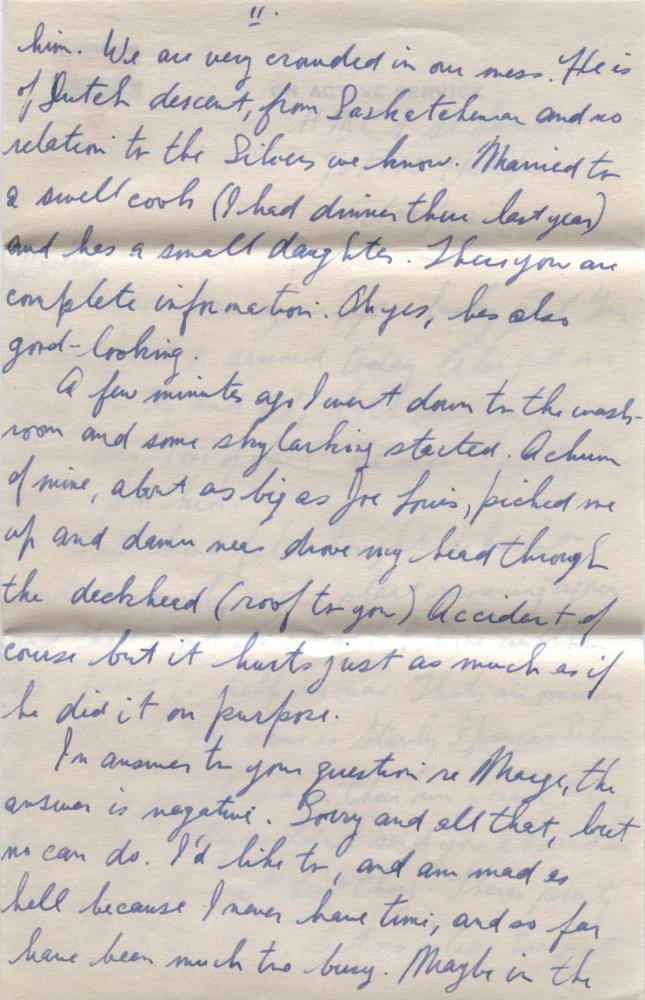 11.
him. We are very crowded in our mess. He is
of Dutch descent, from Saskatchewan and no
relation to the Silvers we know. Married to
a swell cook (I had dinner there last year)
and has a small daughter. There you are
complete information. Oh yes, hes also
good-looking.
A few minutes ago I went down to the wash-
room and some skylarking started. A chum
of mine, about as big as Joe Louis, picked me
up and damn near drove my head through
the deckheed (roof to you) Accident of
course but it hurts just as much as if
he did it on purpose.
In answer to your question re Marge, the
answer is negative. Sorry and all that, but
no can do. I'd like to, and am mad as
hell because I never have time, and so far
have been much too busy. Maybe in the